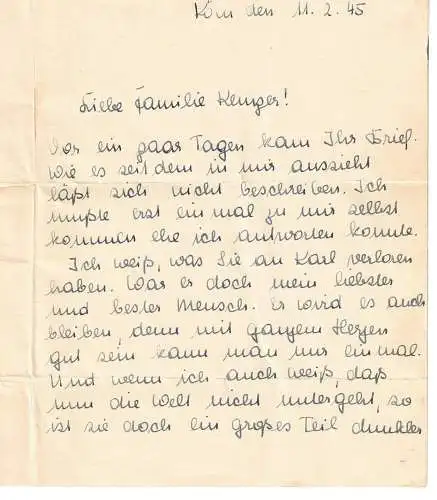 Köln den 11. 2. 45
Liebe Familie Kemper!
Vor ein paar Tagen kam Ihr Brief.
Wie es seitdem in mir aussieht
läßt sich nicht beschreiben. Ich
mußte erst einmal zu mir selbst
kommen ehe ich antworten konnte.
Ich weiß, was Sie an Karl verloren
haben. War er doch mein liebster
und bester Mensch. Er wird es auch
bleiben, denn mit ganzem Herzen
gut sein kann man nur einmal.
Und wenn ich auch weiß, daß
nun die Welt nicht untergeht, so
ist sie doch ein großes Teil dunkler